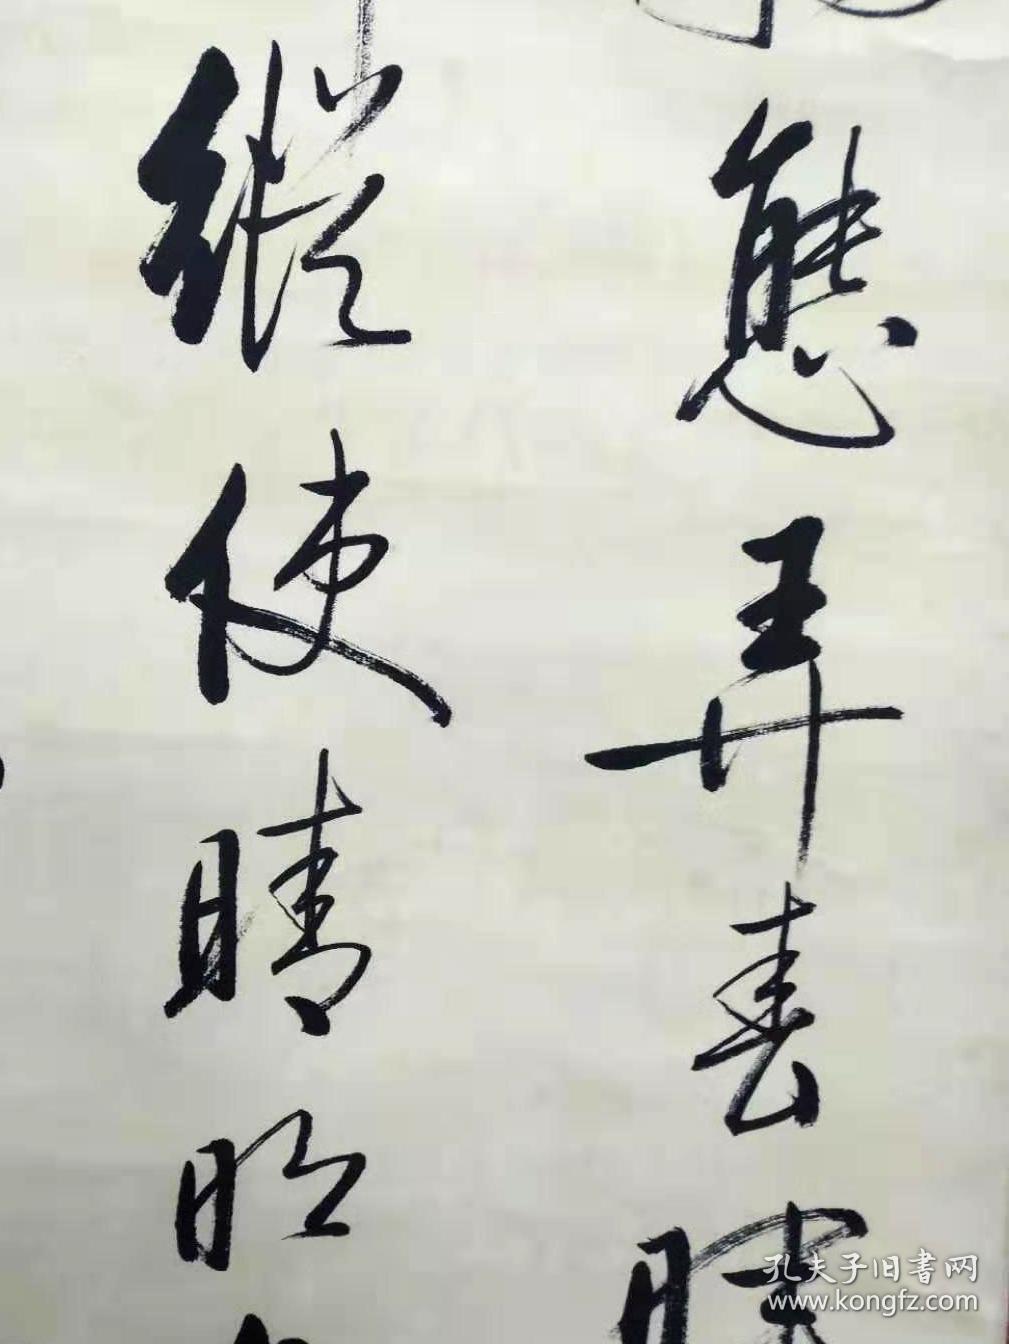 態弄春暉
縱使晴明
孔夫子旧書网
www.kongfz.com